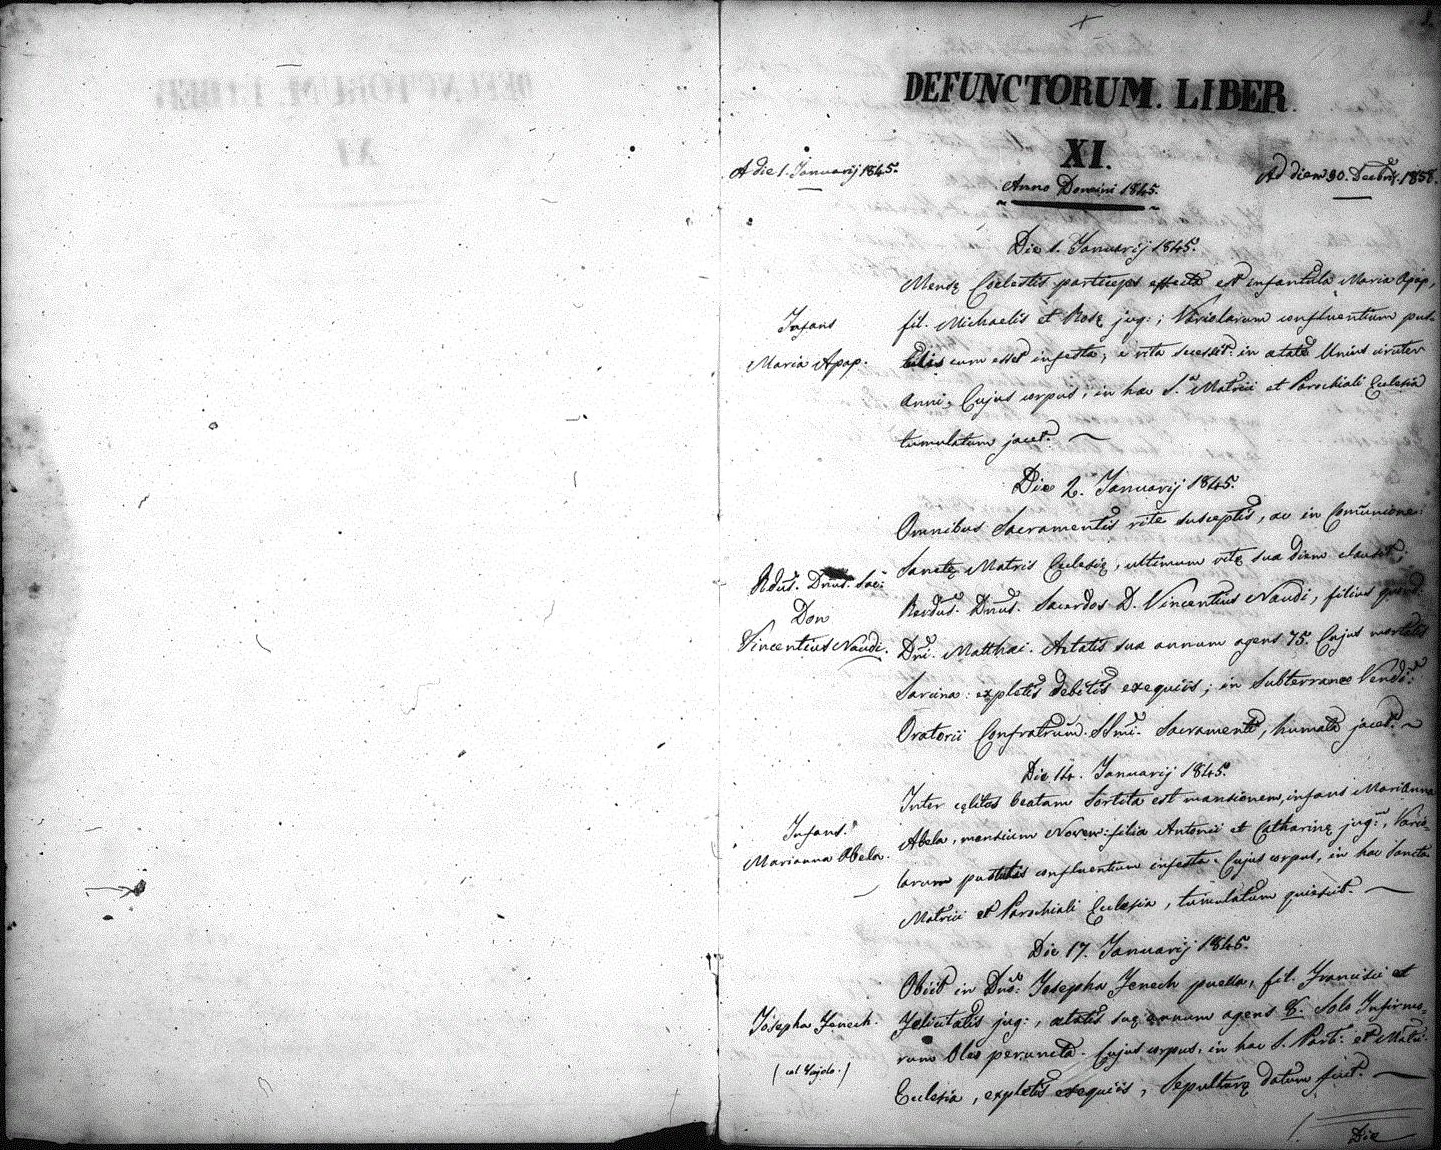 DEFUNCTORUM. LIBER.
XI.
A die 1. Januarij 1845.
Ad diem 30. Decbrῖs. 1858.
Anno Domini 1845.
Die 1. Januarij 1845.
Infans
Maria Apap.
Mensę Cęlestis particeps effecta est infantula Maria Apap,
fil. Michaelis et Rosę jug:; Variolarum confluentium pus-
tulis cum esset infecta, e vita secessit: in ætate Unius circiter
anni, Cujus corpus, in hac S. Matrici et Parochiali Ecclesia
tumulatum jacet.
Die 2. Januarij 1845.
Rdus. Dnus. Sac:
Don
Vincentius Naudi.
Omnibus Sacramentis rite susceptis, ac in Comunione
Sanctę Matris Ecclesię, ultimum vitę sua diem clausit
Revdus. Dnus. Sacerdos D. Vincentius Naudi, filius quond.
Dni. Matthæi. Aetatis sua annum agens 75. Cujus mortalis
Sarcina: expletis debitis exequiis; in subterraneo Vendi:
Oratorii Confratrum. SSmi. Sacramenti, humata jacet.
Die 14. Januarij 1845.
Infans.
Marianna Abela.
Inter cęlites beatam Sortita est mansionem, infans Marianna
Abela, mensium Novem: filia Antonii et Catharinę jug:, Vario-
larum pustulis confluentium infecta. Cujus corpus, in hac Sancta
Matrici et Parochiali Ecclesia, tumulatum quiescit.
Die 17. Januarij 1845.
Josepha Zenech.
Obiit in Dno: Josepha Zenech puella, fil. Francisci et
Felicitatis jug:, ætatis suę annum agens 8. Solo Infirmo-
rum Oleo peruncta. Cujus corpus, in hac S. Paroli: et Matri:
Ecclesia, expletis exequiis, Sepulturę datum fuit.
Die